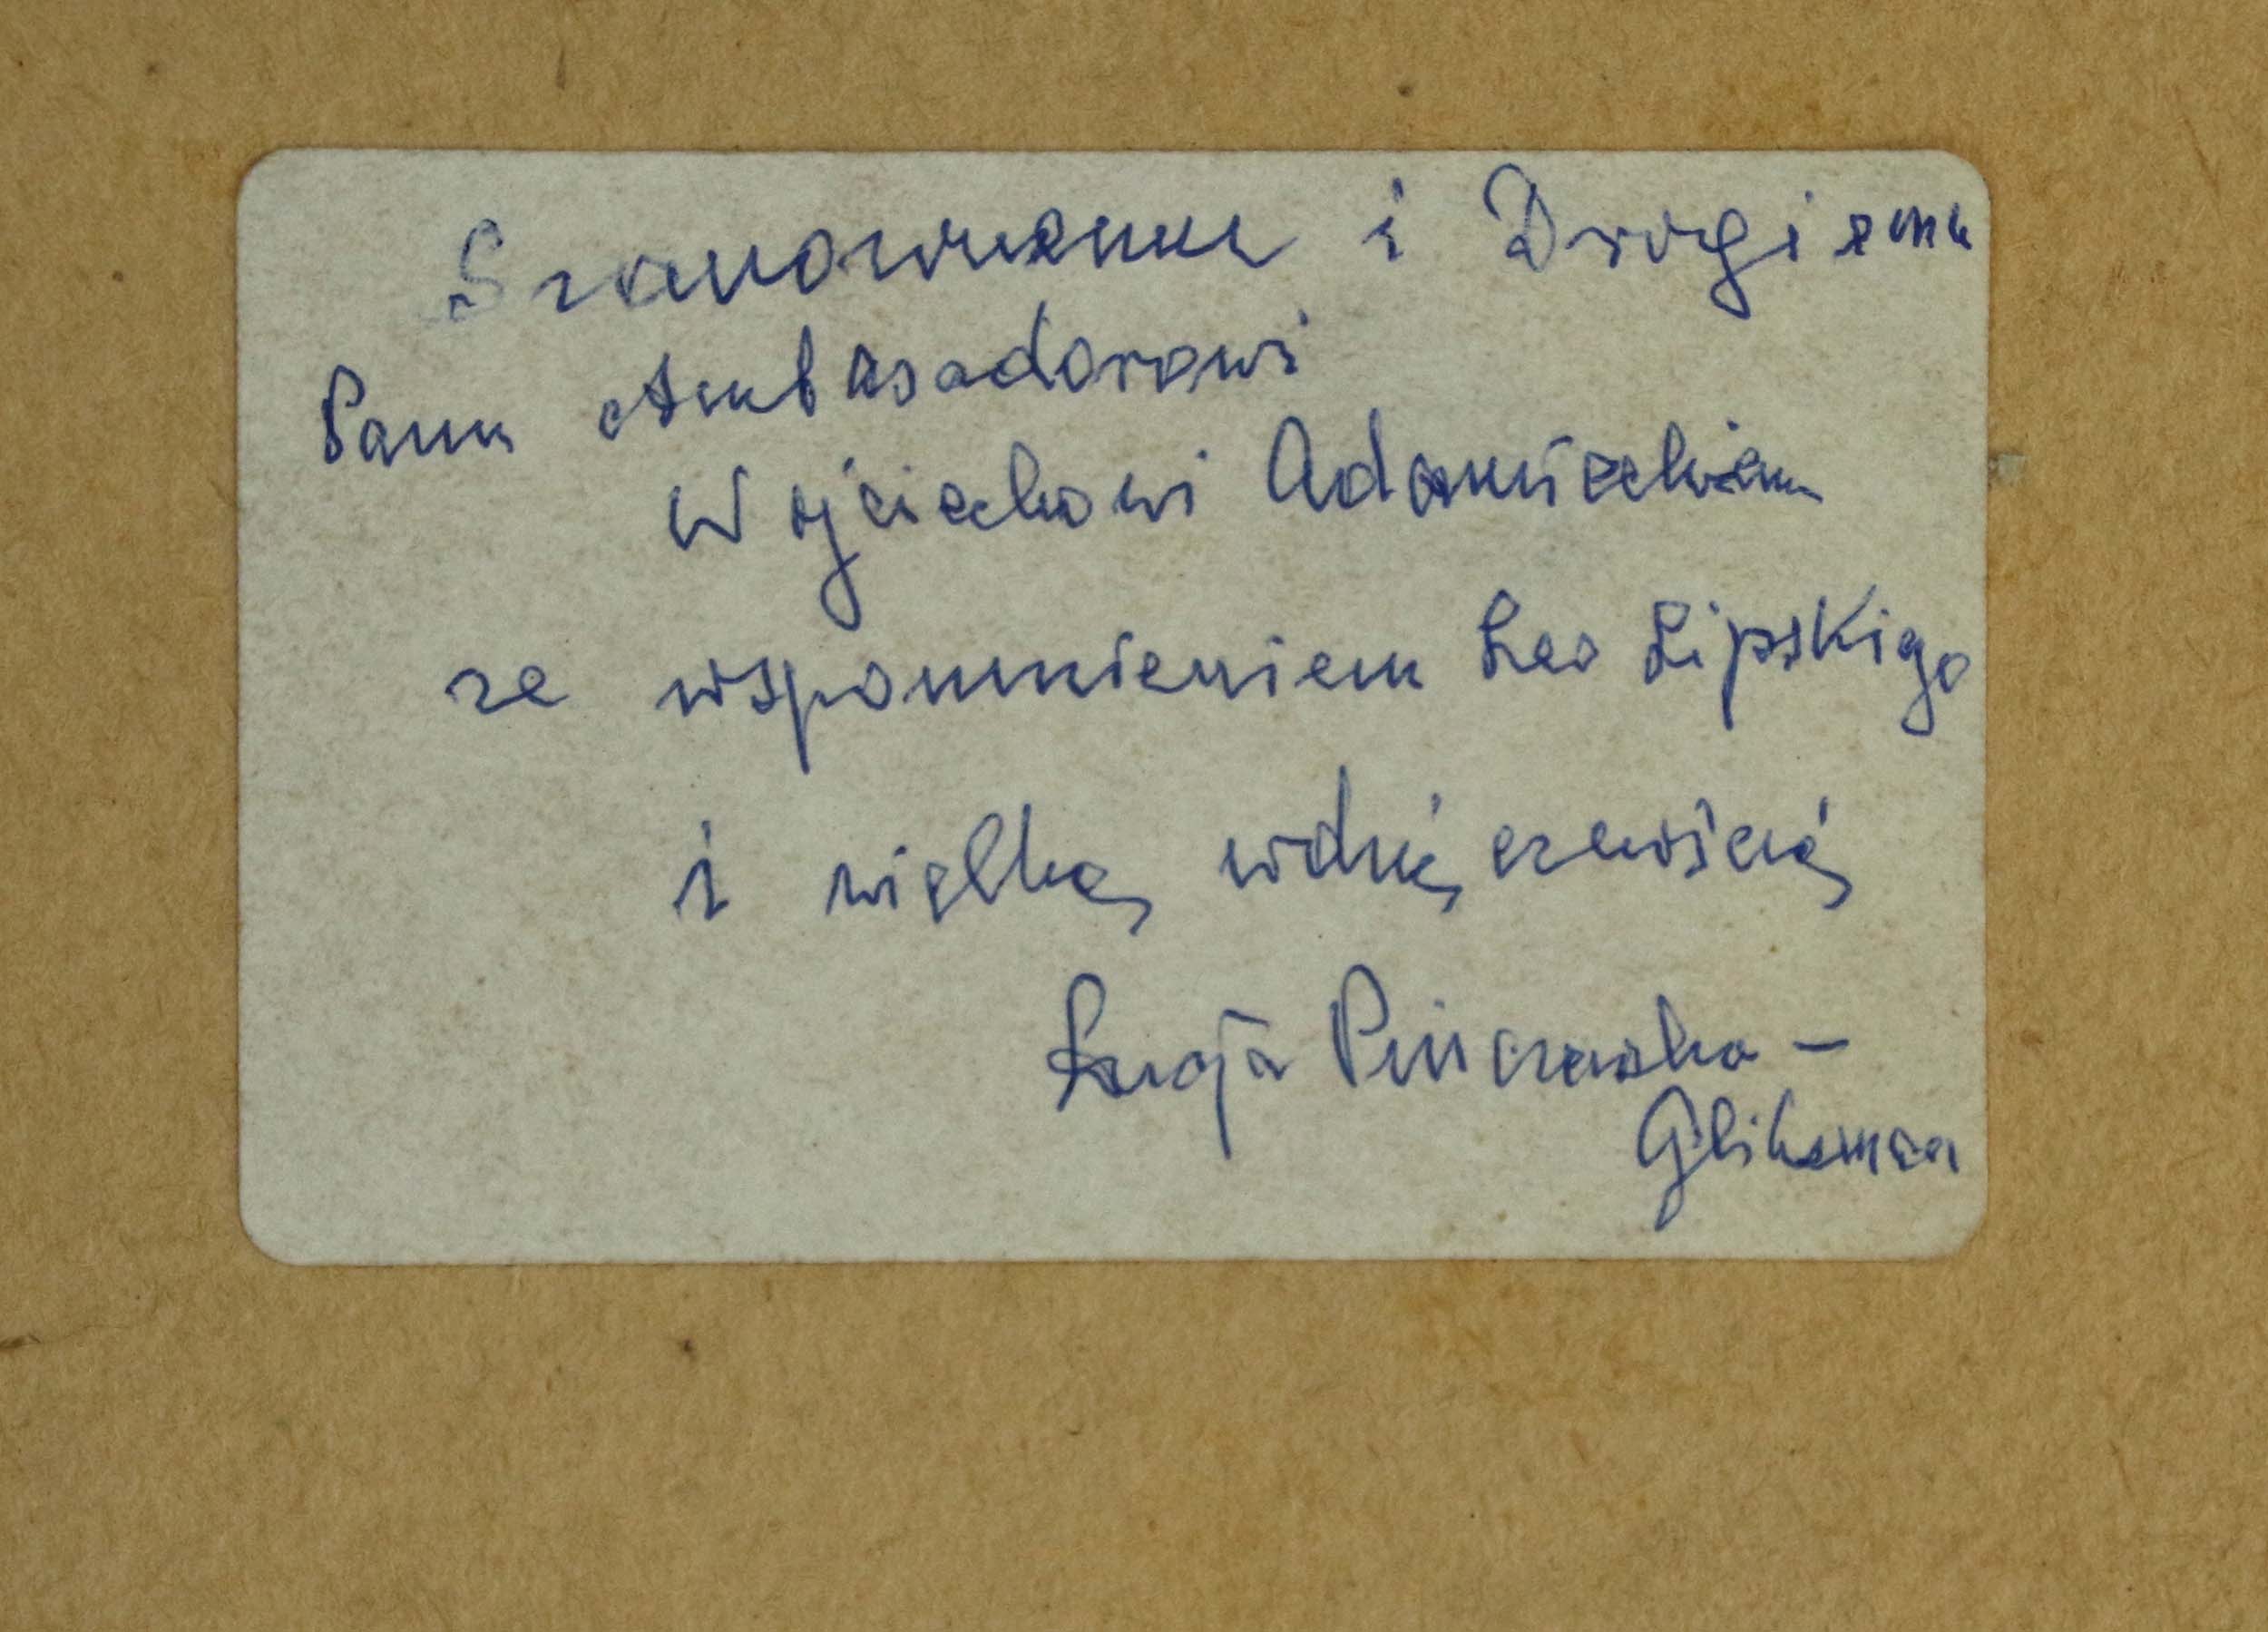 Szanownemu i Drogiemu
Panu Ambasadorowi
Wojciechowi Adamieckiemu
ze wspomnieniem Leo Lipskigo
i wielką wdzięcznością
Łucja Pinczewska-
Gliksman